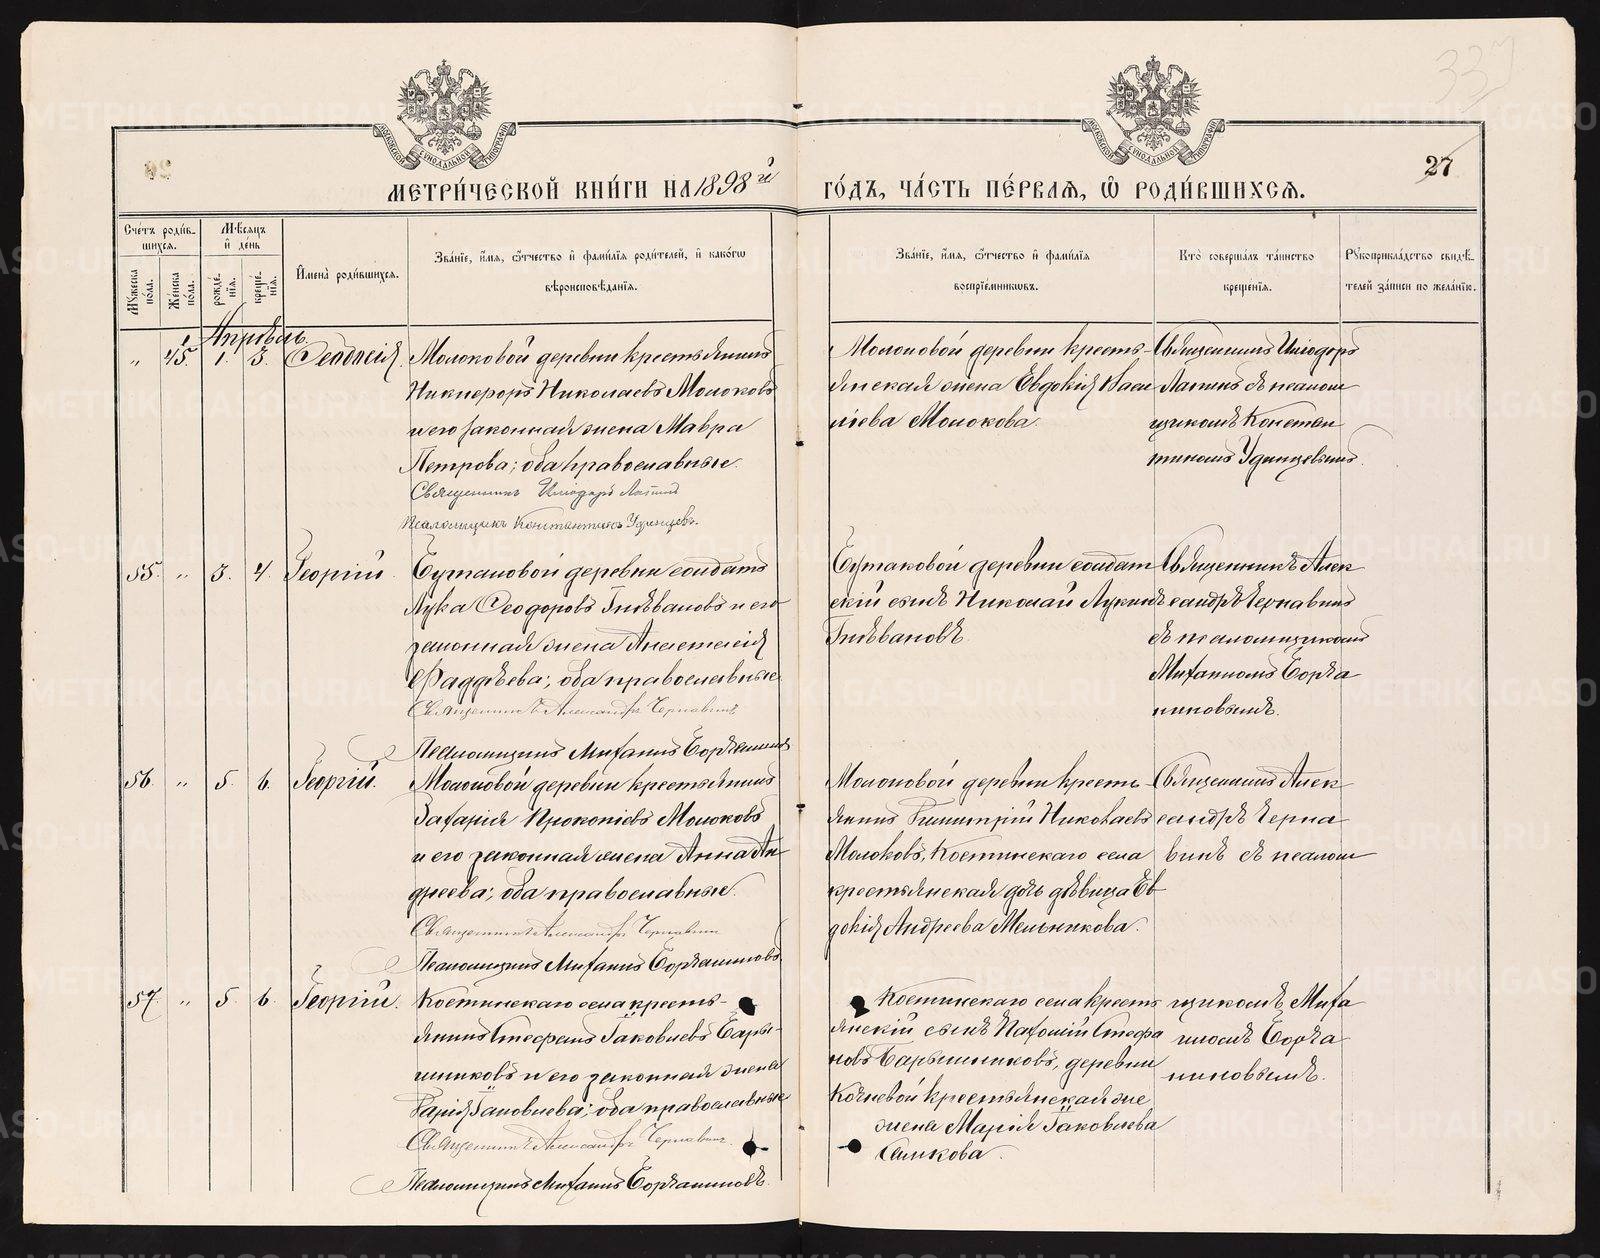 МЕТРИ́ЧЕСКОЙ КНИ́ГИ НА 1898 й
ГО́ДЪ, ЧА́СТЬ ПЕ́РВАѦ, Ѡ҆ РОДИ́ВШИХСѦ.
27
Сче́тъ роди́в-
шихсѧ.
Мѣ́сѧцъ
и҆ де́нь
Мꙋ́жеска по́ла.
Же́нска по́ла.
рожде́-нїѧ.
креще́-нїѧ.
И҆мена̀ роди́вшихсѧ.
Зва́нїе, и҆́мѧ, ѻ҆́тчество и҆ фами́лїѧ роди́телей, и҆ како́гѡ
вѣроисповѣ́данїѧ.
Зва́нїе, и҆́мѧ, ѻ҆́тчество и҆ фами́лїѧ
воспрїе́мникѡвъ.
Кто̀ соверша́лъ та́инство
креще́нїѧ.
Рꙋкоприкла́дство свидѣ́-
телей за́писи по жела́нїю.
Апрѣль
" 45. 1. 3. Ѳеодосія.
Молоковой деревни крестьянинъ
Никифоръ Николаевъ Молоковъ
и его законная жена Мавра
Петрова; оба православные.
Священникъ Иліодоръ Лапинъ
Псаломщикъ Константинъ Удинцевъ.
Молоковой деревни кресть-
янская жена Евдокія Васи
ліева Молокова.
Священникъ Иліодоръ
Лапинъ съ псалом
щикомъ Констан
тиномъ Удинцевымъ.
55. " 3. 4. Георгій.
Бутаковой деревни солдатъ
Лука Ѳеодоровъ Гнѣвановъ и его
законная жена Анастасія
Фаддѣева; оба православные
Священникъ Александръ Чернавинъ
Псаломщикъ Михаилъ Борчаниновъ
Бутаковой деревни солдат
скій сынъ Николай Лукинъ
Гнѣвановъ.
Священникъ Алек
сандръ Чернавинъ
съ псаломщикомъ
Михаиломъ Борча
ниновымъ.
56. " 5. 6. Георгій.
Молоковой деревни крестьянинъ
Захарія Прокопіевъ Молоковъ
и его законная жена Анна Ан
дреева; оба православные.
Священникъ Александръ Чернавинъ
Псаломщикъ Михаилъ Борчаниновъ
Молоковой деревни кресть
янинъ Димитрій Николаевъ
Молоковъ, Костинскаго села
крестьянская дочь дѣвица Ев
докія Андреева Мельникова.
Священникъ Алек
сандръ Черна
винъ съ псалом
57. " 5. 6. Георгій.
Костинскаго села кресть-
янинъ Стефанъ Іаковлевъ Бары-
шниковъ и его законная жена
Дарія Іаковлева; оба православные
Священникъ Александръ Чернавинъ.
Псаломщикъ Михаилъ Борчаниновъ.
Костинскаго села кресть
янскій сынъ Пахомій Стефа
новъ Барышниковъ, деревни
крестьянская же
жена Марія Іаковлева
щикомъ Миха
иломъ Борча
ниновымъ.